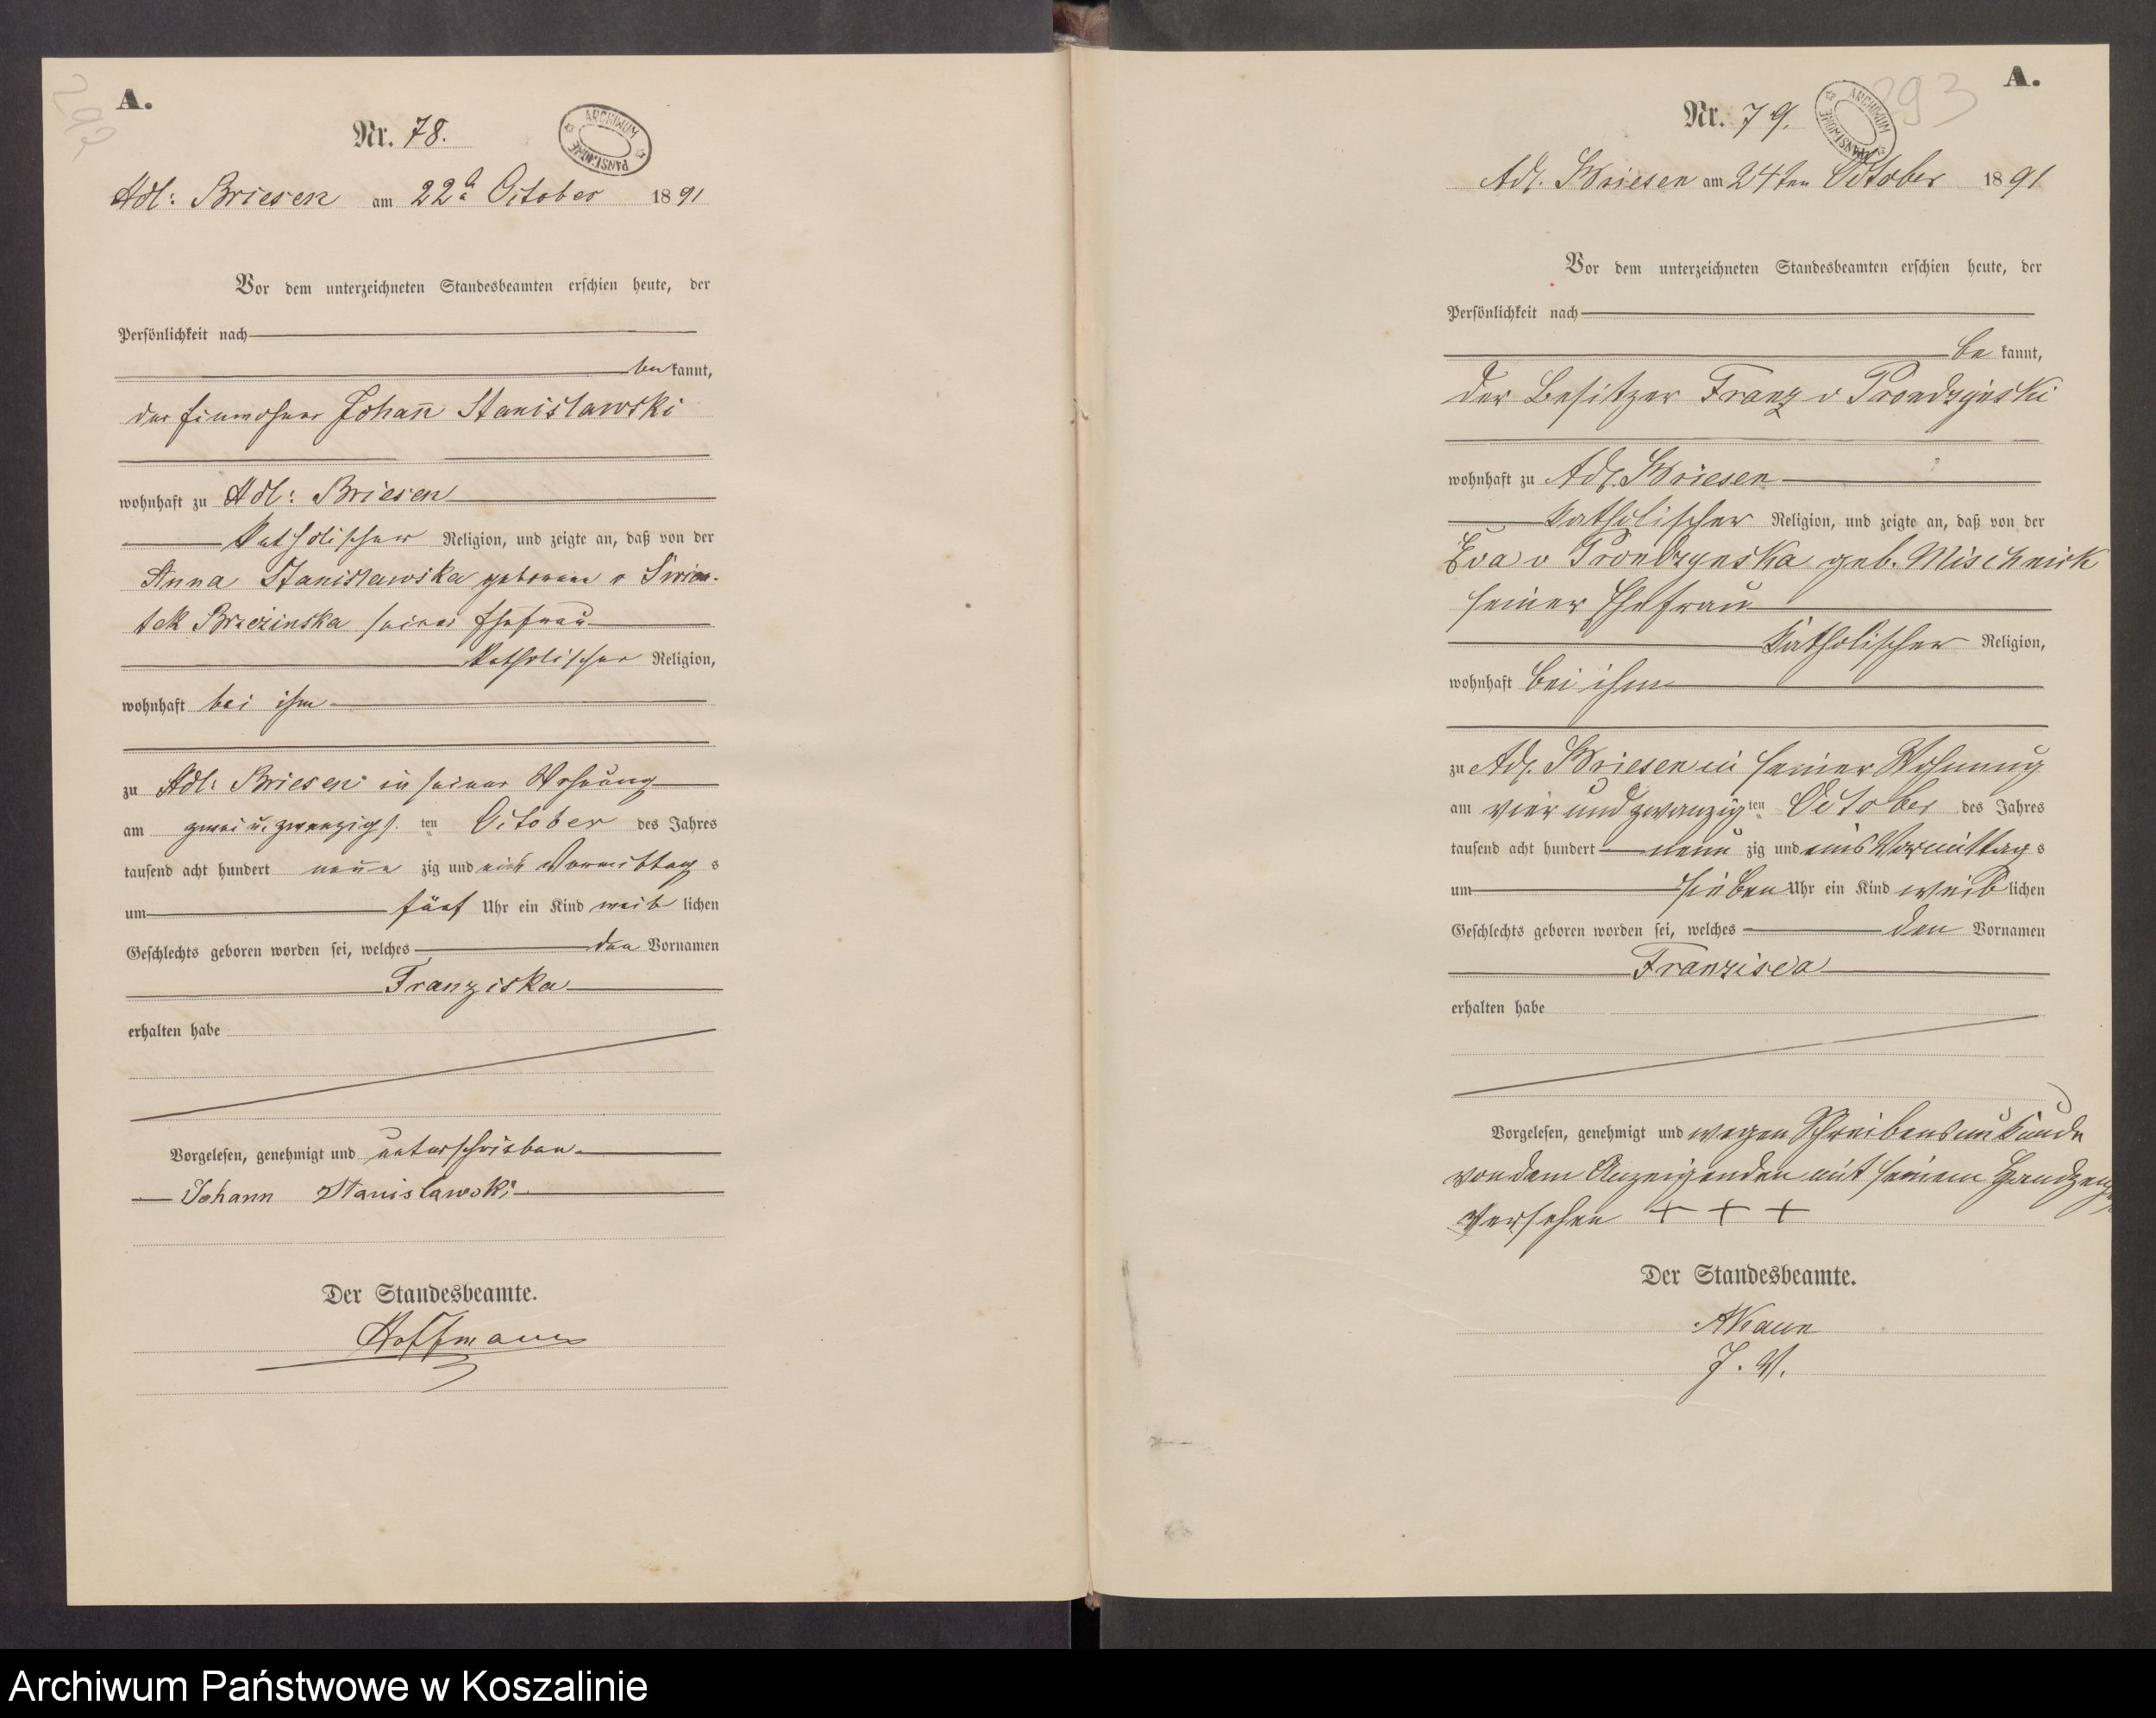 292
A.
Nr. 78.
ARCHIWUM PAŃSTWOWE
Adl: Briesen am 22t October 1891
Vor dem unterzeichneten Standesbeamten erschien heute, der
Persönlichkeit nach
be kannt,
der Einwohner Johann Stanislawski
wohnhaft zu Adl: Briesen
katholischer Religion, und zeigte an, daß von der
Anna Stanislawska geborene v
tek Brzezinska seiner Ehefrau
katholischer Religion,
wohnhaft bei ihm
zu Adl: Briesen in seiner Wohnung
am zwei u. zwanzigs. ten October des Jahres
tausend acht hundert neun zig und eins Vormittag s
um fünf Uhr ein Kind weib lichen
Geschlechts geboren worden sei, welches den Vornamen
Franziska
erhalten habe
Vorgelesen, genehmigt und unterschrieben
Johann Stanislawski
Der Standesbeamte.
Hoffmann
293
A.
Nr. 79.
ARCHIWUM PAŃSTWOWE
Adl. Briesen am 24ten October 1891
Vor dem unterzeichneten Standesbeamten erschien heute, der
Persönlichkeit nach
be kannt,
der Besitzer Franz v Prondzynski
wohnhaft zu Adl. Briesen
katholischer Religion, und zeigte an, daß von der
Eva v Prondzynska geb. Mischnick
seiner Ehefrau
katholischer Religion,
wohnhaft bei ihm
zu Adl. Briesen in seiner Wohnung
am vier und zwanzig ten October des Jahres
tausend acht hundert neun zig und eins Vormittag s
um sieben Uhr ein Kind weib lichen
Geschlechts geboren worden sei, welches den Vornamen
Franzisca
erhalten habe
Vorgelesen, genehmigt und wegen Schreibensunkunde
von dem Anzeigenden mit seinem
versehen + + +
Der Standesbeamte.
J. V.
Archiwum Państwowe w Koszalinie